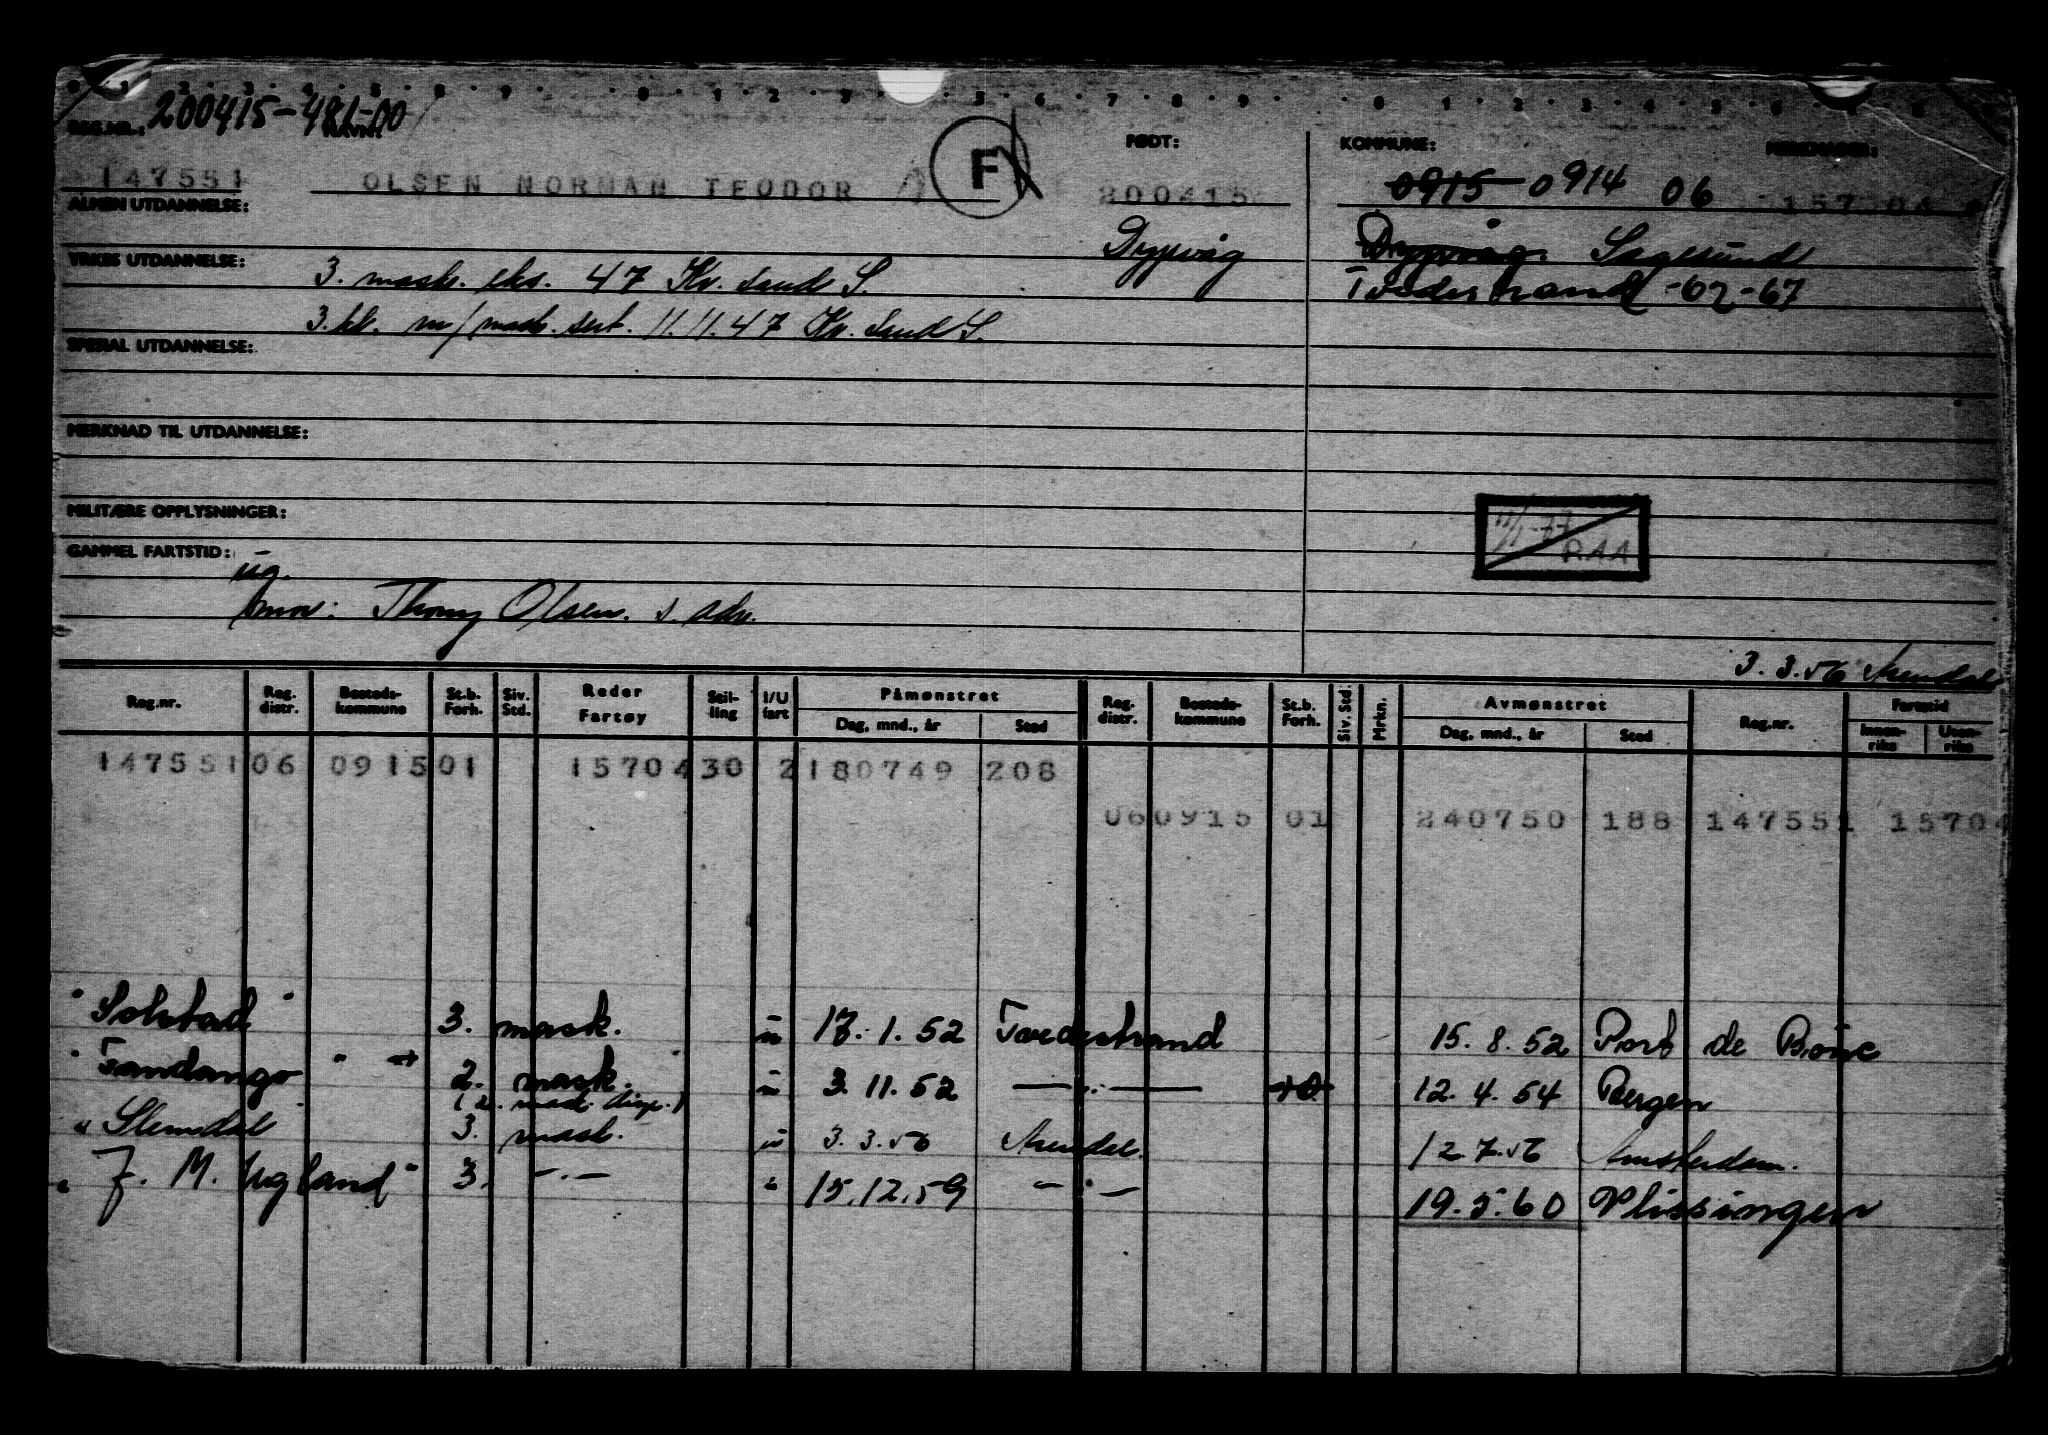 200415-481-00
REG.NR.: NAVN: FØDT: KOMMUNE:
147551 OLSEN NORMAN TEODOR F 200415 0915 0914 06 15704
ALMEN UTDANNELSE: Dypvåg Dypvåg. Sagesund
YRKES UTDANNELSE: 3. mask. eks. 47 Kr. sand S. Tvedestrand -62-67
3. kl. m/mask. sert. 11.11.47 Kr. Sand S.
SPESIAL UTDANNELSE:
MERKNAD TIL UTDANNELSE:
MILITÆRE OPPLYSNINGER:
11/1-77 RAA
GAMMEL FARTSTID:
ug.
mor: Thomy Olsen. s. adr.
3.3.56 Arendal
Reg.nr. Reg. distr. Bosteds-kommune St.b. Forh. Siv. Std. Reder Fartøy Stil-ling I/U fart Påmønstret Dag, mnd., år Sted Reg. distr. Bosteds-kommune St.b. Forh. Siv. Std. Mrkn. Avmønstret Dag, mnd., år Sted Reg.nr. Fartstid Innen-riks Uten-riks
147551 06 0915 01 15704 30 2 180749 208
06 0915 01 240750 188 147551 15704
"Solstad" 3. mask. u 17.1.52 Tvedestrand 15.8.52 Port de Bouc
"Fandango" 2. mask. u 3.11.52 —"— 12.4.54 Bergen
"Slemdal 3. mask. u 3.3.56 Arendal. 12.7.56 Amsterdam.
"J. M. Ugland" 3. —"— " 15.12.59 —"— 19.5.60 Vlissingen